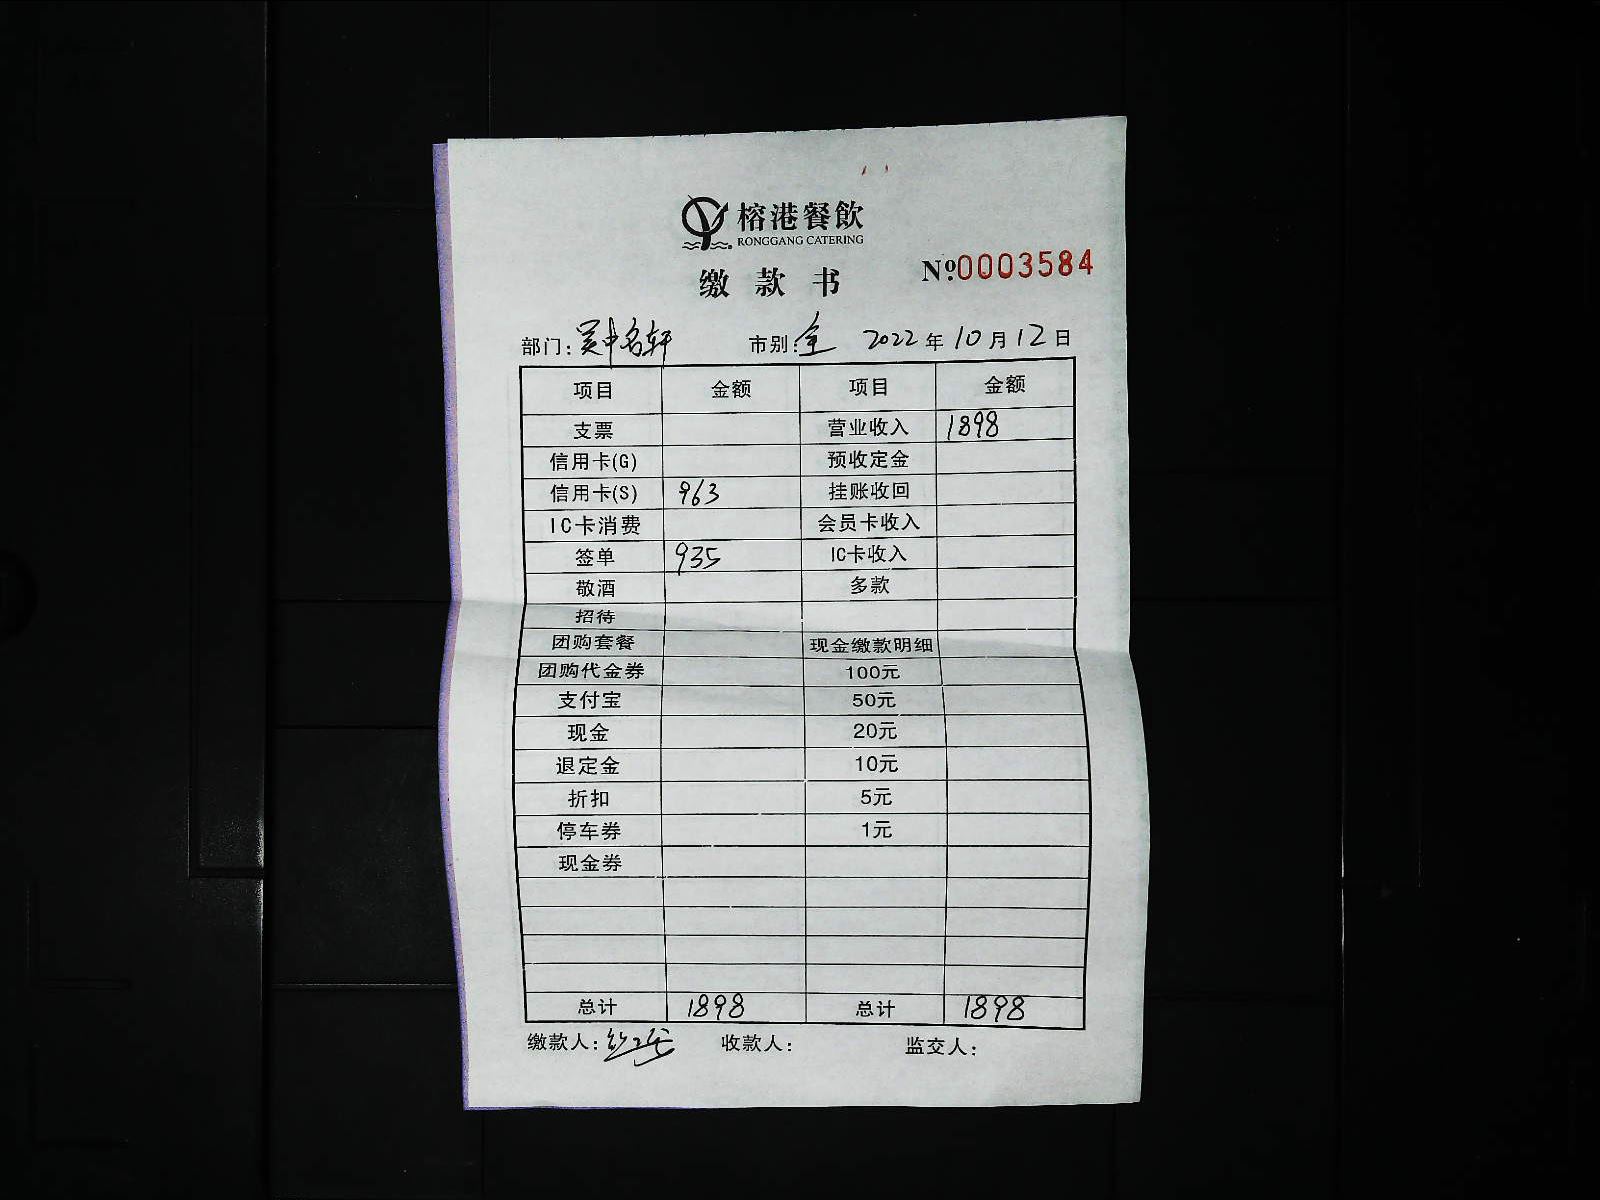 榕港餐飲
RONGGANG CATERING
缴款书
Nº0003584
部门：吴中名轩 市别：全 2022年10月12日
项目 金额 项目 金额
支票 营业收入 1898
信用卡(G) 预收定金
信用卡(S) 963 挂账收回
IC卡消费 会员卡收入
签单 935 IC卡收入
敬酒 多款
招待
团购套餐 现金缴款明细
团购代金券 100元
支付宝 50元
现金 20元
退定金 10元
折扣 5元
停车券 1元
现金券
总计 1898 总计 1898
缴款人： 收款人： 监交人：